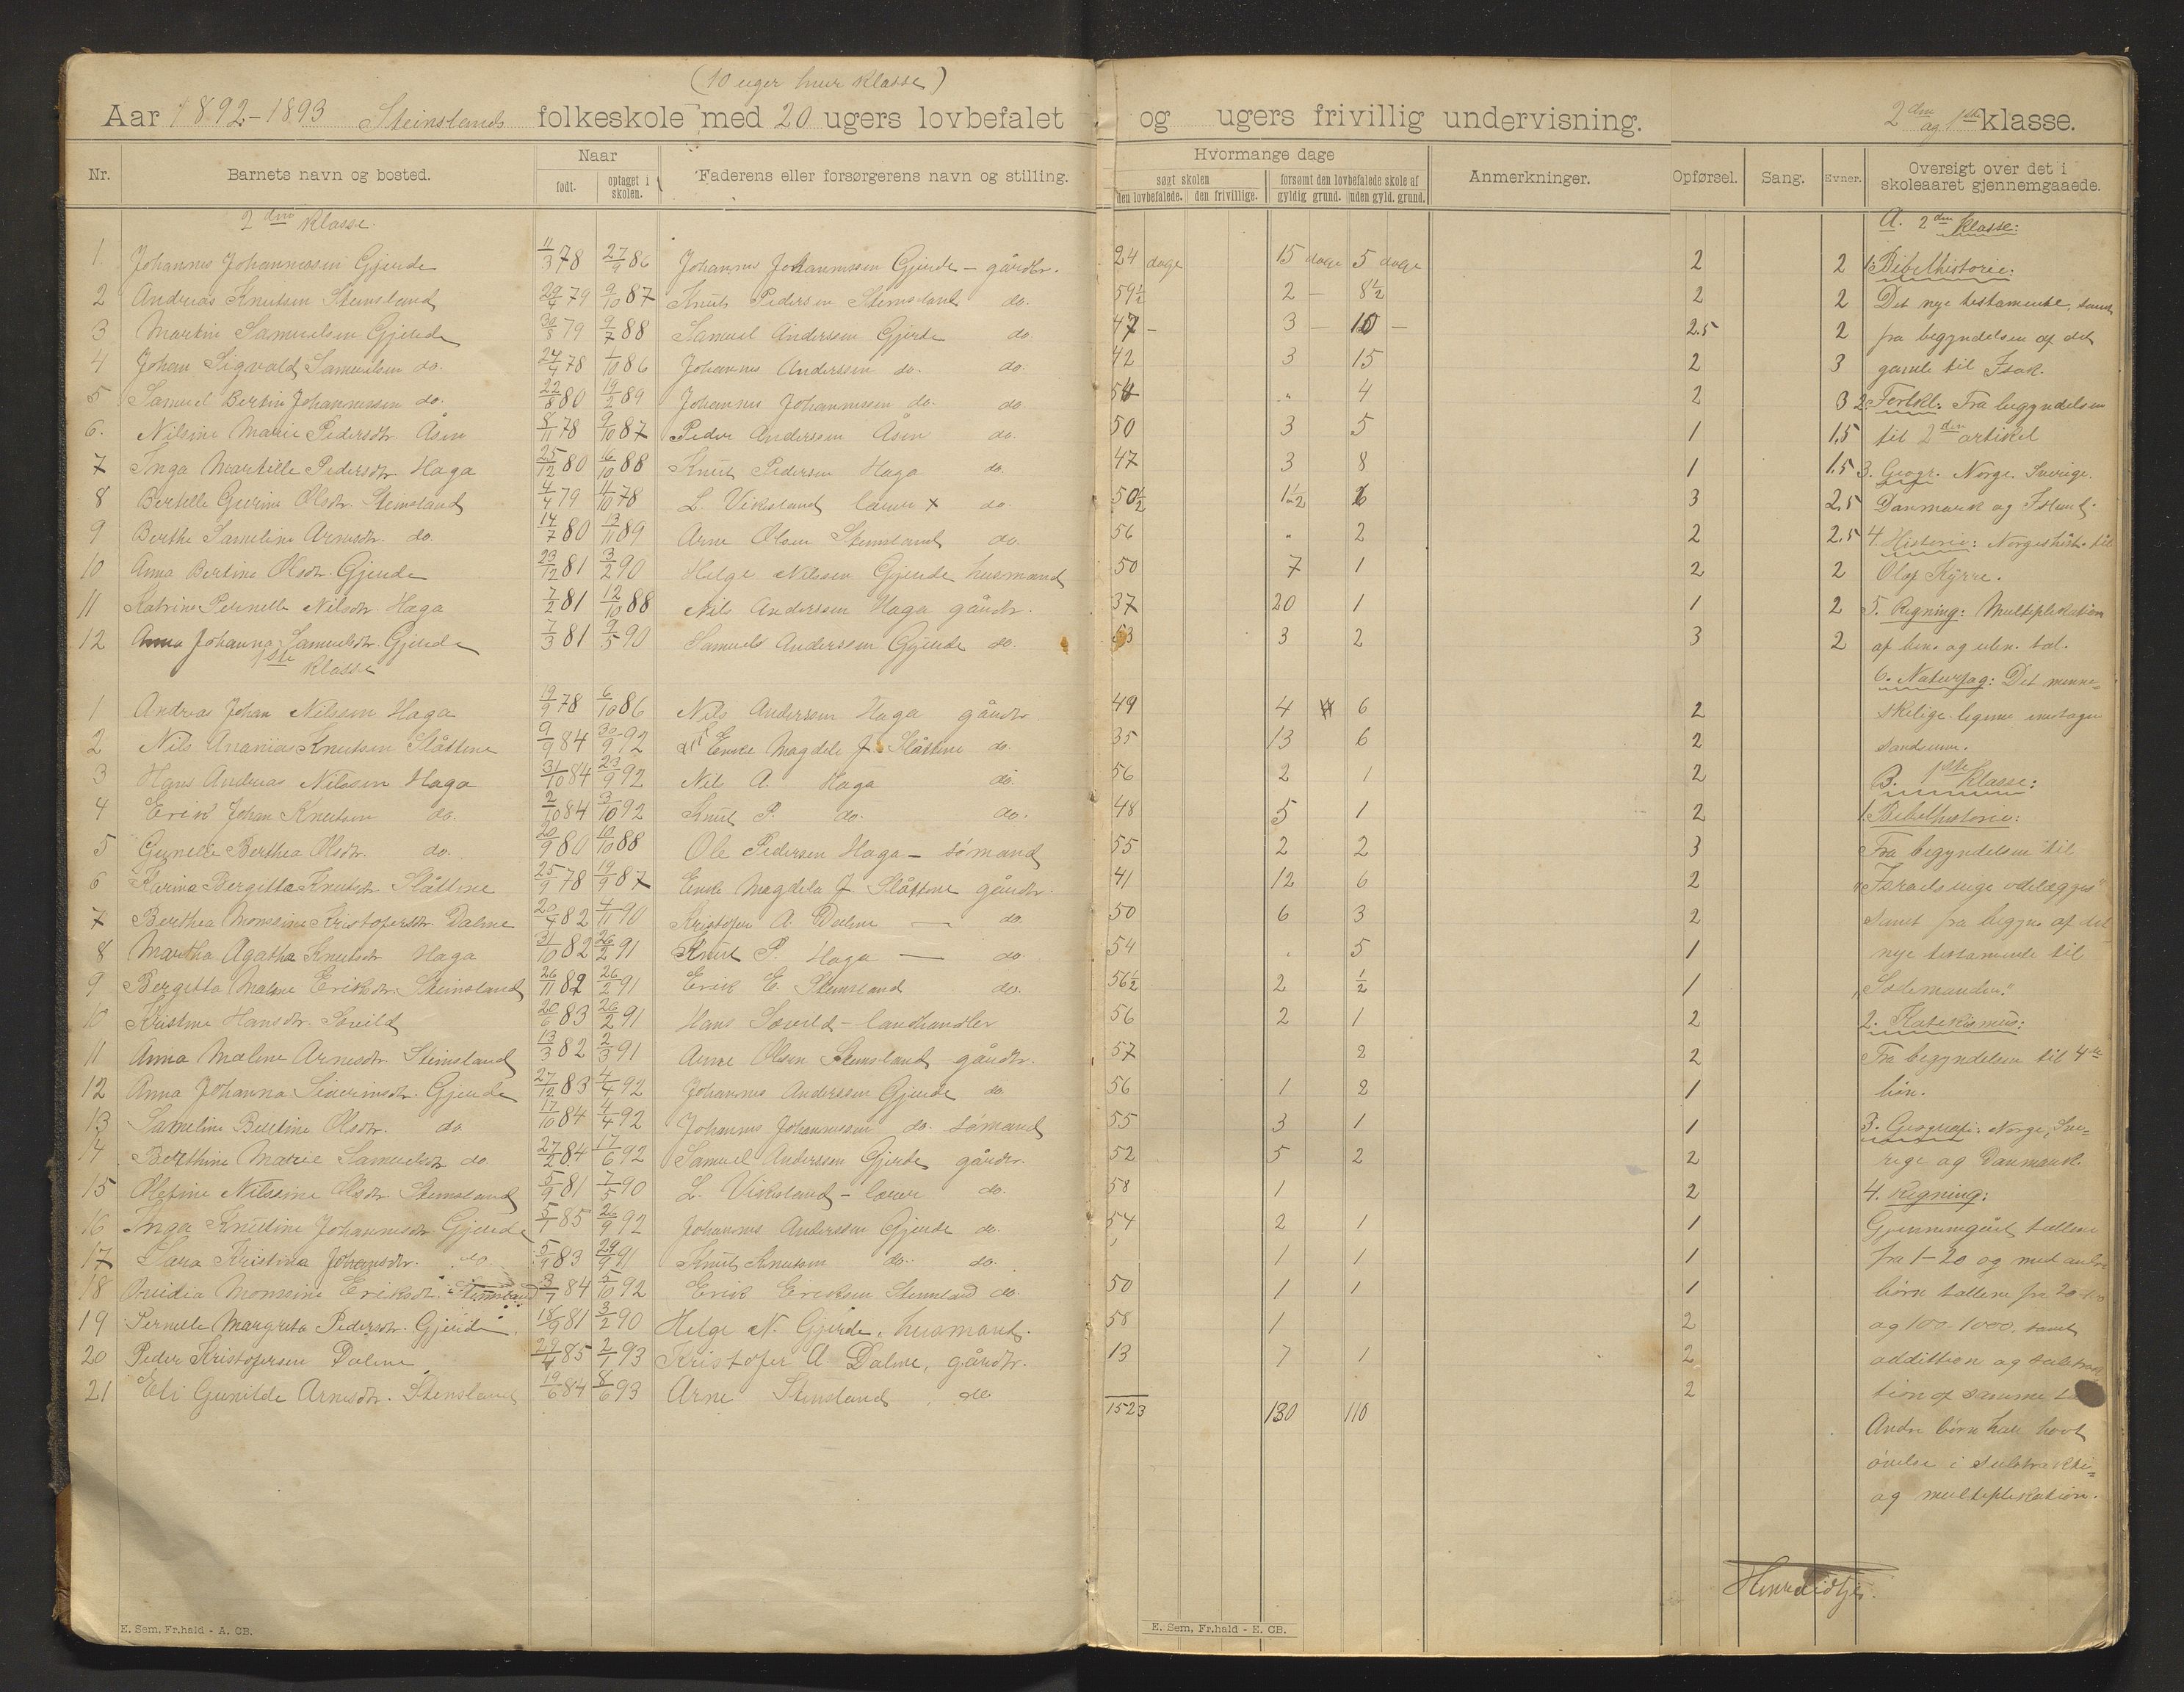 (10 uger hver klasse)
Aar 1892-1893 Steinslands folkeskole med 20 ugers lovbefalet og ugers frivillig undervisning. 2den og 1ste klasse.
Nr. Barnets navn og bosted. Naar født. optaget i skolen. Faderens eller forsørgerens navn og stilling. Hvormange dage søgt skolen den lovbefalede. den frivillige. forsømt den lovbefalede skole af gyldig grund. uden gyld. grund. Anmerkninger. Opførsel. Sang. Evner. Oversigt over det i skoleaaret gjennemgaaede.
2den klasse. A. 2den klasse:
1. Johannes Johannessen Gjerde 11/3 78 27/9 86 Johannes Johannessen Gjerde - gårdbr. 24 dage 15 dage 5 dage 2 2 1. Bibelhistorie:
2 Andreas Knutsen Steinsland 29/4 79 9/10 87 Knut Pedersen Steinsland do. 59½ 2 - 8½ 2 2 Det nye testamente, samt
3 Martin Samuelsen Gjerde 30/8 79 9/7 88 Samuel Anderssen Gjerde do. 47 - 3 - 10 - 2.5 2 fra begyndelsen af det
4 Johan Sigvald Samuelsen do. 24/4 78 1/10 86 Johannes Anderssen do. do. 42 3 15 2 3 gamle til Isak.
5 Samuel Bertin Johannessen do. 22/8 80 19/2 89 Johannes Johannessen do. do. 54 " 4 2 3 2. Forkl: Fra begyndelsen
6. Nilsine Marie Pedersdtr. Åsen 8/11 78 9/10 87 Peder Anderssen Åsen do. 50 3 5 1 1.5 til 2den artikel
7 Inga Martille Pedersdtr. Haga 25/12 80 6/10 88 Knut Pedersen Haga do. 47 3 8 1 1.5 3. Geogr. Norge. Sverige.
8 Bertelle Gurine Olsdtr. Steinsland 4/4 79 4/10 78 L. Viksland lærer x do. 50½ 1½ 6 3 2.5 Danmark og Island.
9 Berthe Sameline Arnesdtr. do. 14/7 80 13/11 89 Arne Olsen Steinsland do. 56 " 2 2 2.5 4. Historie: Norgeshist. til
10 Anna Bertine Olsdtr. Gjerde 23/12 81 3/2 90 Helge Nilssen Gjerde husmand 50 7 1 2 2 Olaf Kyrre.
11 Katrine Pernelle Nilsdtr. Haga 7/2 81 12/10 88 Nils Anderssen Haga gårdbr. 37 20 1 1 2 5. Regning: Multiplikation
12 Anna Johanna Samuelsdtr. Gjerde 7/3 81 9/5 90 Samuel Anderssen Gjerde do. 53 3 2 3 2 af ben. og uben. tal.
1ste klasse 6. Naturfag: Det menne=
1 Andreas Johan Nilssen Haga 19/9 78 6/10 86 Nils Anderssen Haga gårdbr 49 4 6 2 skelige legeme undtagen
2 Nils Ananias Knutsen Slåttene 9/9 84 30/9 92 Enke Magdele J. Slåttene do. 35 13 6 2 sandserne.
3 Hans Andreas Nilssen Haga 31/10 84 23/9 92 Nils A. Haga do. 56 2 1 2 B. 1ste klasse:
4 Erik Johan Knutsen do. 2/10 84 3/10 92 Knut P. do. do. 48 5 1 2 1. Bibelhistorie:
5 Gunelle Berthea Olsdtr. do. 20/9 80 10/10 88 Ole Pedersen Haga - sømand 55 2 2 3 Fra begyndelsen til
6 Karina Bergitta Knutsdtr Slåttene 25/9 78 19/9 87 Enke Magdela J. Slåttene gårdbr. 41 12 6 2 "Israels rige ødelægges"
7 Berthea Monsine Kristofersdtr. Dalene 20/4 82 4/11 90 Kristofer A. Dalene — do. 50 6 3 2 samt fra begyn. af det
8 Martha Agatha Knutsdtr Haga 31/10 82 26/2 91 Knut P. Haga — do 54 " 5 1 nye testamente til
9 Bergitta Malene Eriksdtr. Steinsland 26/11 82 26/2 91 Erik E. Steinsland do. 56½ 2 ½ 1 "Sædemanden."
10 Kristine Hansdtr. Søvild 20/6 83 26/2 91 Hans Søvild - landhandler 56 2 1 2 2. Katekismus:
11 Anna Malene Arnesdtr. Steinsland 13/3 82 2/3 91 Arne Olsen Steinsland gårdbr. 57 2 2 Fra begyndelsen til 4de
12 Anna Johanna Sivertsdtr. Gjerde 27/12 83 4/4 92 Johannes Anderssen Gjerde do 56 1 2 1 bøn.
13 Sameline Bertine Olsdtr. do 17/10 84 4/4 92 Johannes Johannessen do. sømand 55 3 1 1 3. Geografi: Norge, Sve=
14 Berthine Marie Samuelsdtr do. 27/2 84 17/6 92 Samuel Anderssen Gjerde gårdbr. 52 5 2 2 rige og Danmark.
15 Olefine Nilssine Olsdtr. Steinsland 5/9 81 7/5 90 L. Viksland - lærer do. 58 1 2 4. Regning:
16 Inga Knutine Johannesdtr Gjerde 5/1 85 26/9 92 Johannes Anderssen Gjerde do. 54 2 1 1 Gjennemgået tallene
17 Sara Kristina Johansdtr. do. 5/9 83 29/9 91 Knut Knutsen do. do. 1 1 1 fra 1-20 og med andre
18 Monsine Eriksdtr. Steinsland 3/1 84 5/10 92 Erik Eriksen Steinsland do. 50 1 1 1 børn tallene fra 20-100
19 Pernelle Margreta Pedersdtr. Gjerde. 18/9 81 3/2 90 Helge N. Gjerde, husmand. 58 1 2 og 100-1000, samt
20 Peder Kristofersen Dalene 29/4 85 2/1 93 Kristofer A. Dalene, gårdbr. 13 7 1 2 addittion og subtrak
21 Eli Gunilde Arnesdtr. Steinsland 19/6 84 8/6 93 Arne Steinsland, do 2 tion af samme
1523 130 110 Andre børn har havt
øvelse i subtraktion=
og multiplikation.
E. Sem, Fr.hald - A. CB. E. Sem, Fr.hald - E. CB.